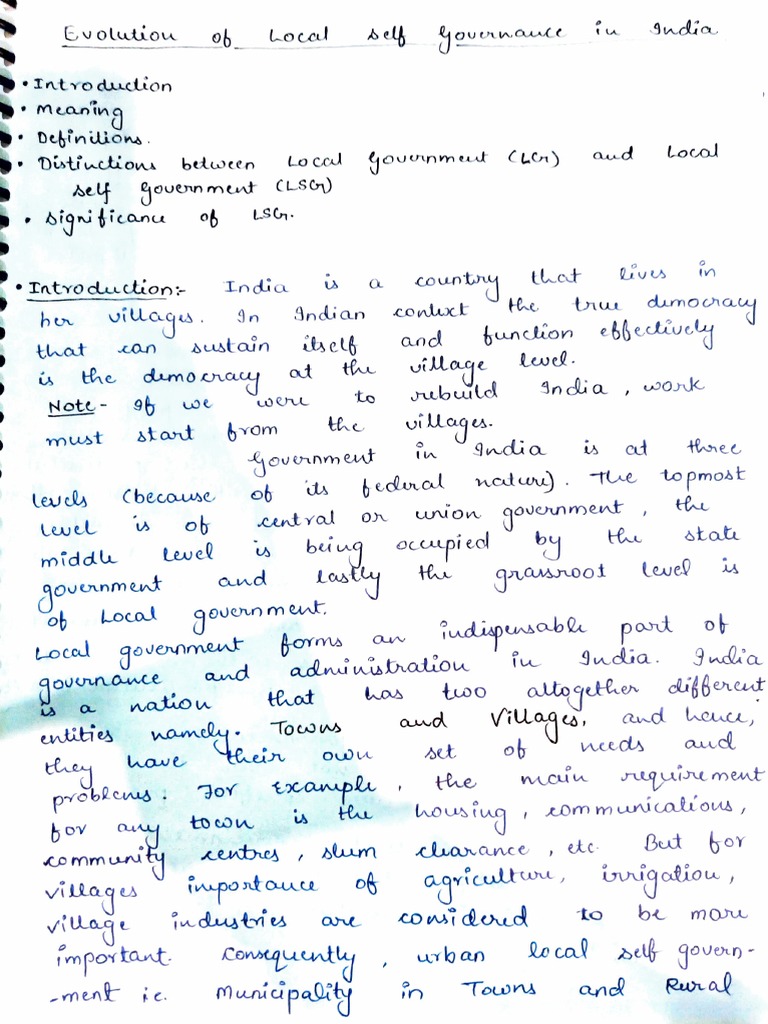 Evolution of Local self Governance in India
• Introduction
• Meaning
• Definitions.
• Distinctions between Local Government (LG) and Local
self Government (LSG)
• Significance of LSG.
• Introduction:- India is a country that lives in
her villages. In Indian context the true democracy
that can sustain itself and function effectively
is the democracy at the village level.
Note - If we were to rebuild India, work
must start from the villages.
Government in India is at three
levels (because of its federal nature). The topmost
level is of central or union government, the
middle level is being occupied by the state
government and lastly the grassroot level is
of Local government.
Local government forms an indispensable part of
governance and administration in India. India
is a nation that has two altogether different
entities namely. Towns and Villages, and hence,
they have their own set of needs and
problems. For Example, the main requirement
for any town is the housing, communications,
community centres, slum clearance, etc. But for
villages importance of agriculture, irrigation,
village industries are considered to be more
important. Consequently, urban local self govern-
-ment i.e. Municipality in Towns and Rural